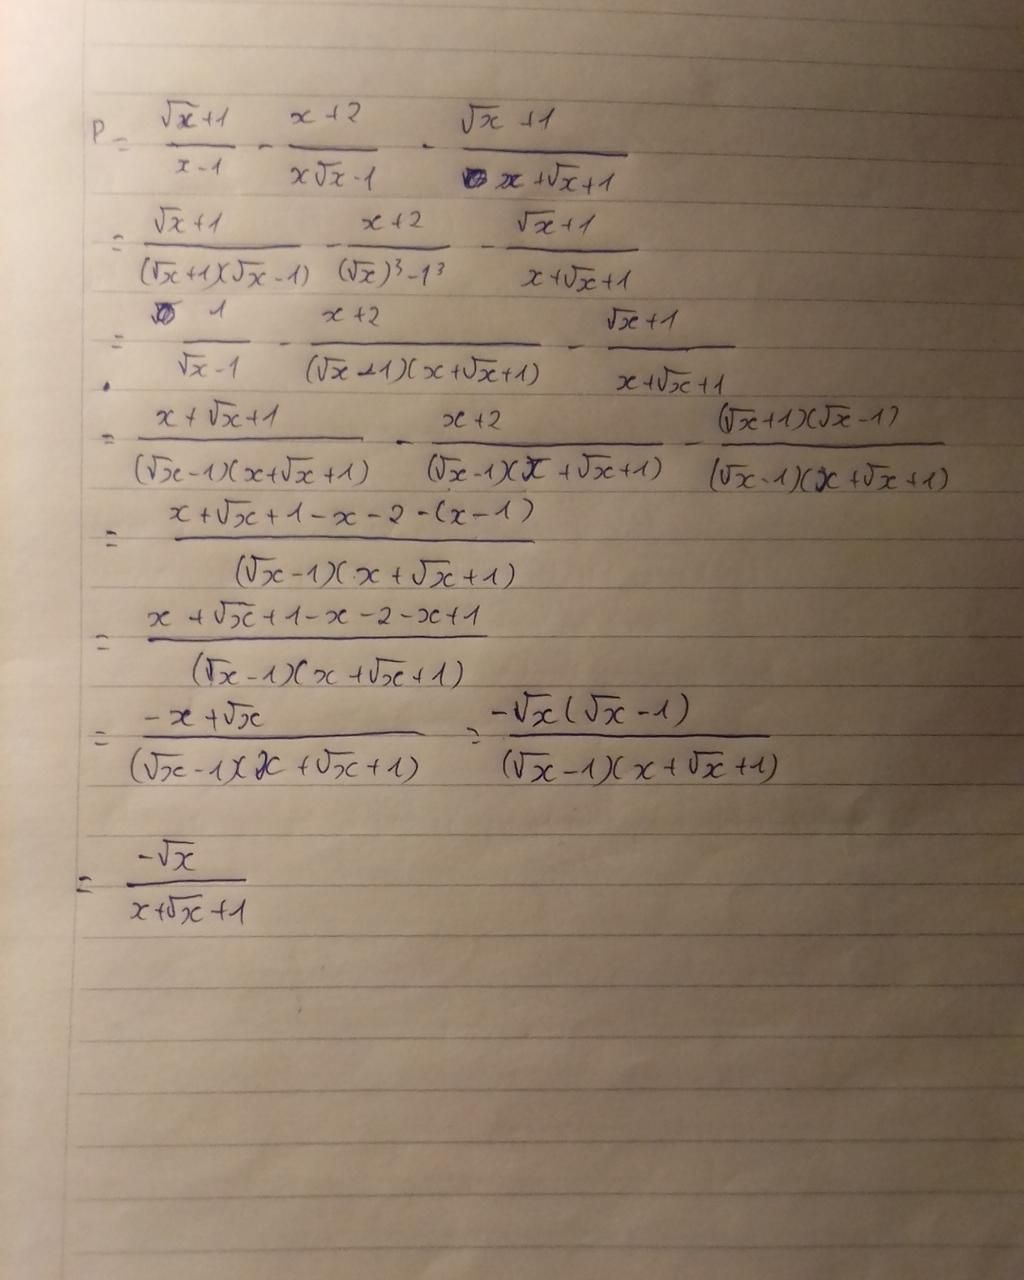 P = (√x+1)/(x-1) - (x+2)/(x√x-1) - (√x+1)/(x+√x+1)
= (√x+1)/((√x+1)(√x-1)) - (x+2)/((√x)³-1³) - (√x+1)/(x+√x+1)
= 1/(√x-1) - (x+2)/((√x-1)(x+√x+1)) - (√x+1)/(x+√x+1)
= (x+√x+1)/((√x-1)(x+√x+1)) - (x+2)/((√x-1)(x+√x+1)) - ((√x+1)(√x-1))/((√x-1)(x+√x+1))
= (x+√x+1-x-2-(x-1))/((√x-1)(x+√x+1))
= (x+√x+1-x-2-x+1)/((√x-1)(x+√x+1))
= (-x+√x)/((√x-1)(x+√x+1)) = (-√x(√x-1))/((√x-1)(x+√x+1))
= (-√x)/(x+√x+1)